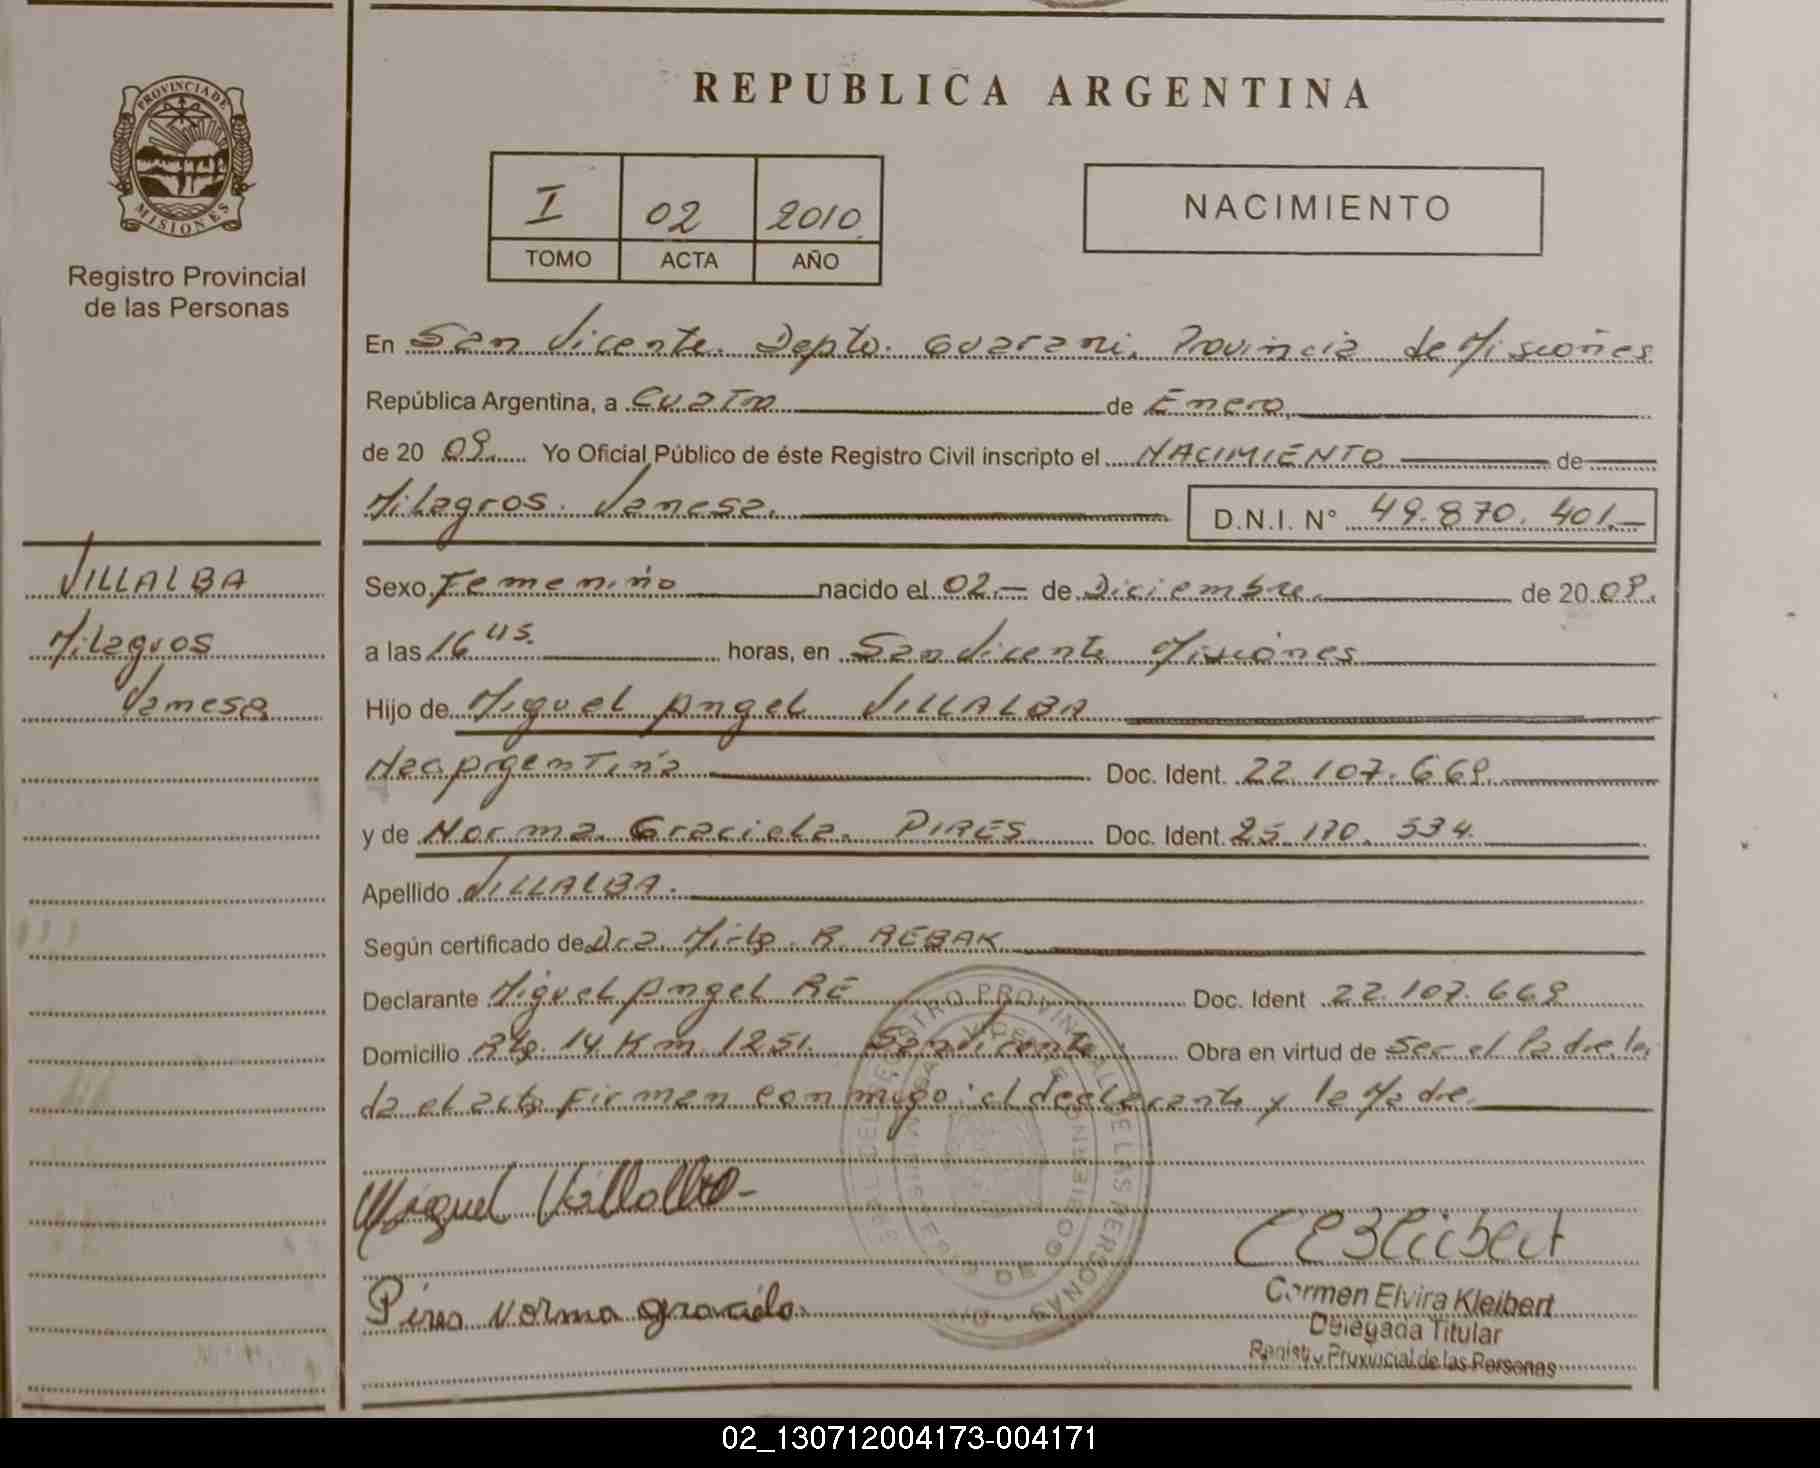 REPUBLICA ARGENTINA
PROVINCIA DE MISIONES
Registro Provincial
de las Personas
I 02 2010
TOMO ACTA AÑO
NACIMIENTO
En San Vicente. Depto. Guarani. Provincia de Misiones
República Argentina, a Cuatro de Enero
de 20 09. Yo Oficial Público de éste Registro Civil inscripto el NACIMIENTO de
Milagros Vanesa. D.N.I. N° 49.870.401.-
VILLALBA
Milagros
Vanesa
Sexo Femenino nacido el 02.- de Diciembre. de 20 09.
a las 16 hs. horas, en San Vicente Misiones
Hijo de Miguel Angel VILLALBA
Nac Argentina Doc. Ident. 22.107.669
y de Norma Graciela PIRES Doc. Ident. 25.170.534
Apellido VILLALBA.
Según certificado de Dra. R. REBAK
Declarante Miguel Angel RE Doc. Ident 22.107.669
Domicilio Rta. 14 Km 1251. San Vicente Obra en virtud de Ser el Padre. lei
da el acta Firman conmigo: el declarante y la Madre.
REGISTRO PROVINCIAL DE LAS PERSONAS
Miguel Villalba-
Pires Norma graciela
Carmen Elvira Kleibert
Delegada Titular
Registro Provincial de las Personas
02_130712004173-004171